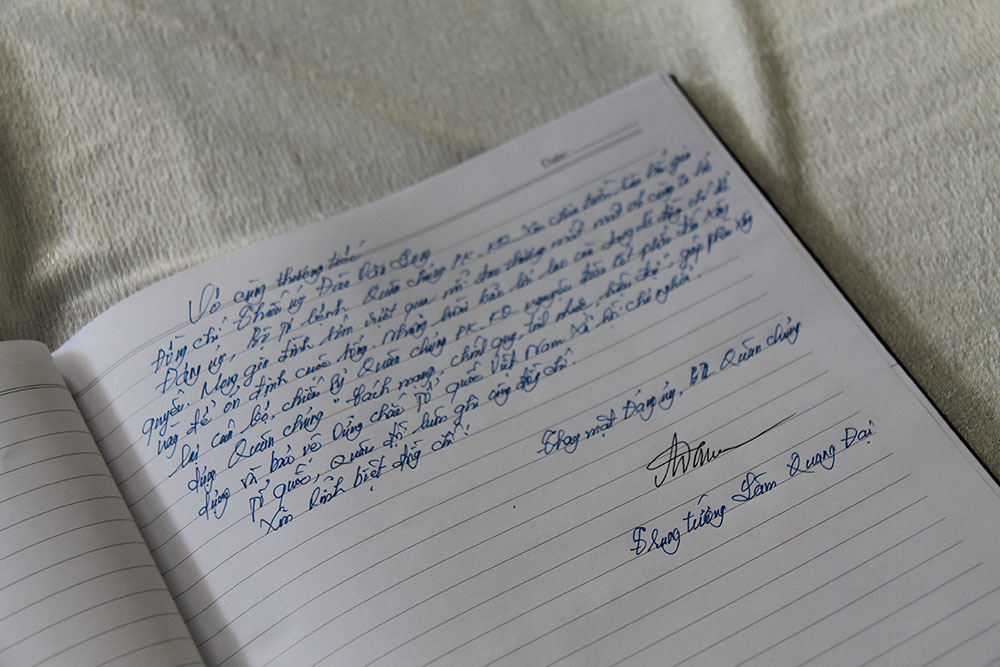 Date:
Vô cùng thương tiếc
Đồng chí Thiếu úy Đào Văn Long
Đảng ủy, Bộ Tư lệnh Quân chủng PK-KQ xin chia buồn sâu sắc gia
quyến. Mong gia đình sớm vượt qua nỗi đau thương mất mát vô cùng to lớn
này để ổn định cuộc sống. Những
lại cán bộ, chiến sỹ Quân chủng PK-KQ nguyện đoàn kết phấn đấu xây
dựng Quân chủng "Cách mạng, chính quy, tinh nhuệ, hiện đại", góp phần xây
dựng và bảo vệ vững chắc Tổ quốc Việt Nam xã hội chủ nghĩa.
Tổ quốc, Quân đội luôn ghi công đồng chí.
Xin vĩnh biệt đồng chí!
Thay mặt Đảng ủy, Quân chủng
Trung tướng Lâm Quang Đại